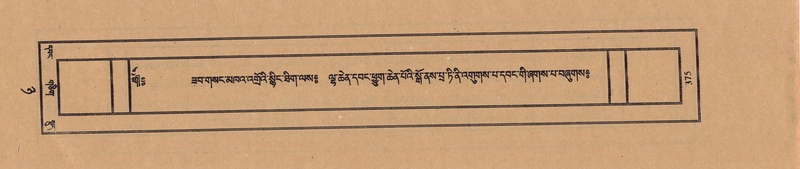 ཟབ་གསང་མཁའ་འགྲོའི་སྙིང་ཐིག་ལས༔ ལྷ་ཆེན་དབང་ཕྱུག་ཆེན་པོའི་སྒོ་ནས་པྲ་ཏི་ནི་འགུགས་པ་དབང་གི་ཞགས་པ་བཞུགས༔
375